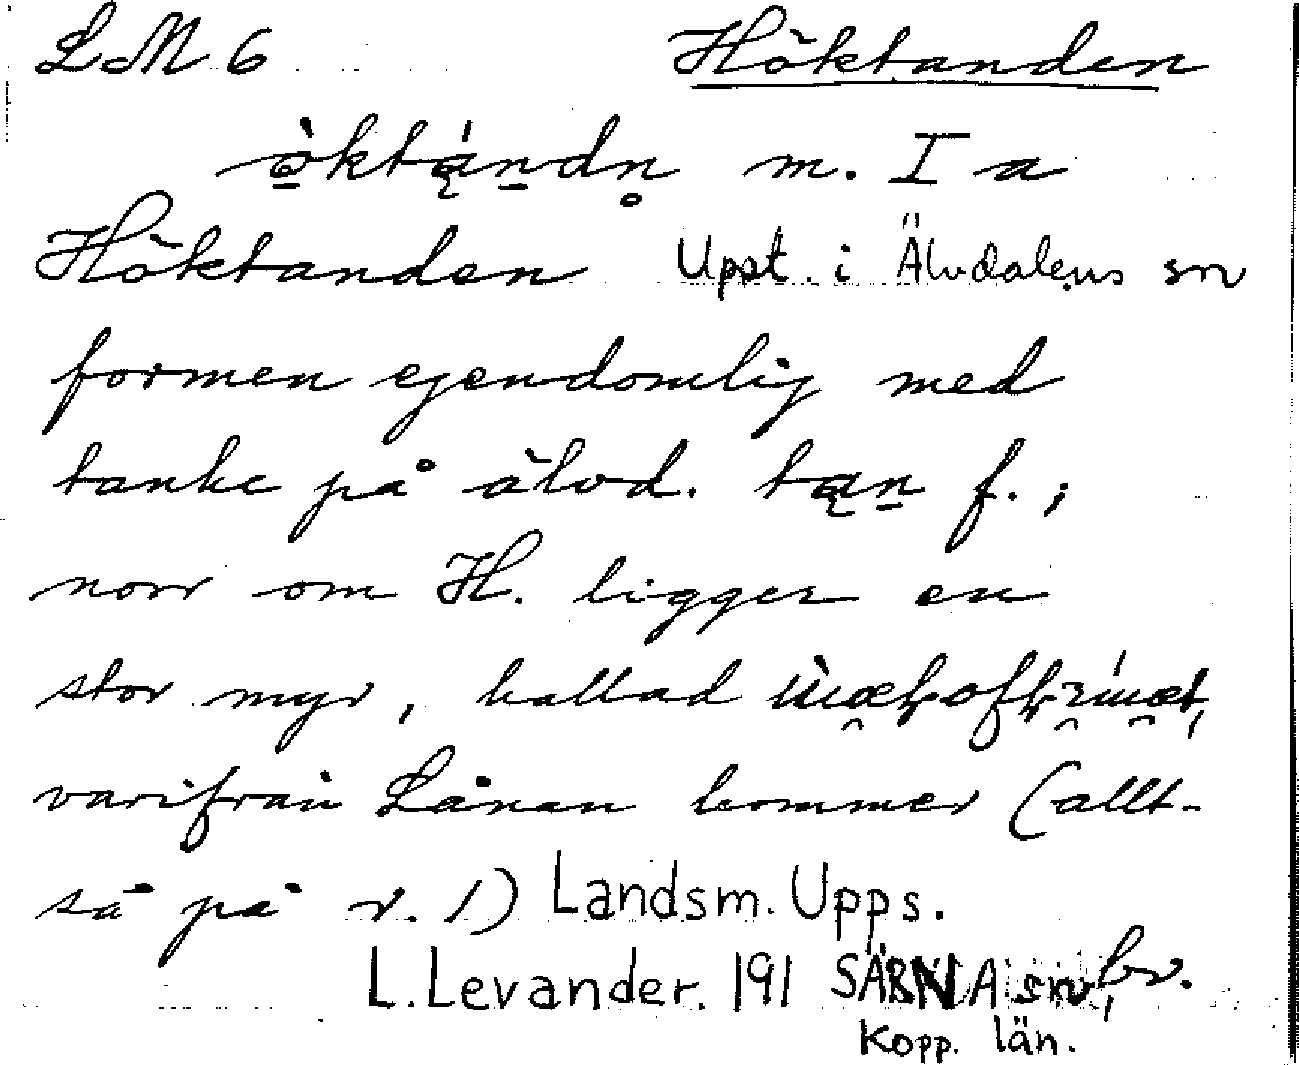 LM 6 Höktanden
ö̀ktą́ndn̥ m. I a
Höktanden Uppt. i Älvdalens sn
formen egendomlig med
tanke på älvd. tąn f.;
norr om H. ligger en
stor myr, kallad
varifrån Lånan kommer (allt-
så på v. 1) Landsm. Upps.
L. Levander. 191 SÄRNA sn, br.
Kopp. län.